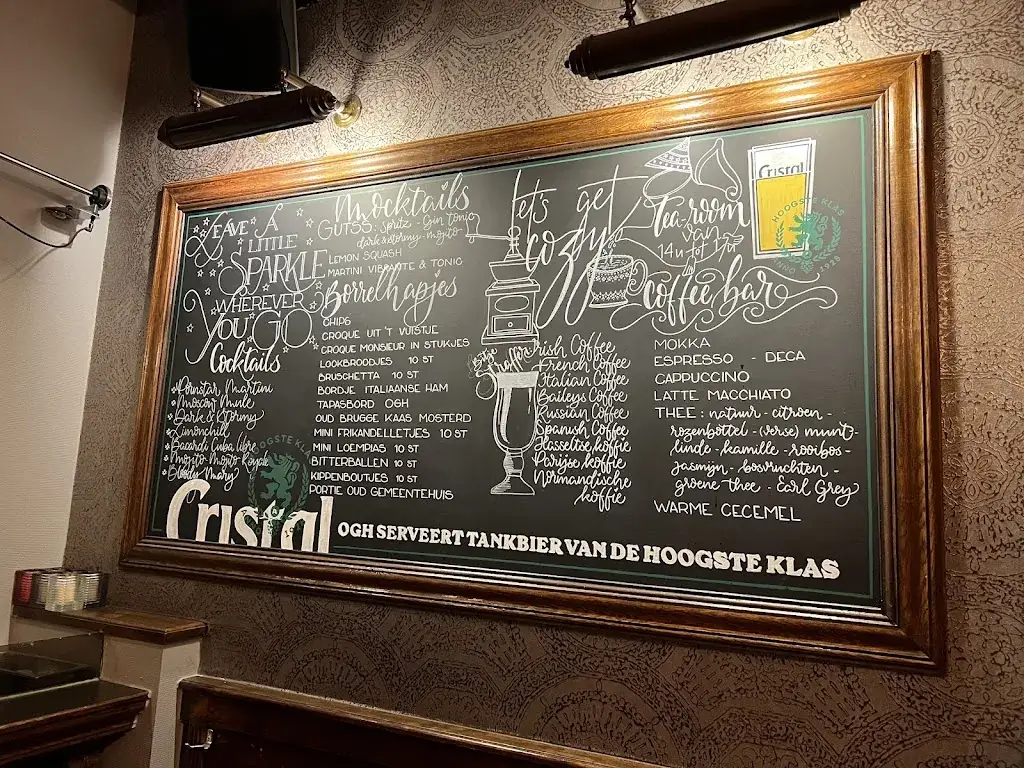 LEAVE A
LITTLE
SPARKLE
WHEREVER
YOU GO
Cocktails
Pornstar Martini
Moscow Mule
Dark & Stormy
Limonchill
Bacardi Cuba libre
Mojito - Mojito Royal
Bloody Mary
Cristal
HOOGSTE KLAS
Mocktails
GUTSS: Spritz - Gin tonic
dark & stormy - mojito
LEMON SQUASH
MARTINI VIBRANTE & TONIC
Borrelhapjes
CHIPS
CROQUE UIT 'T VUISTJE
CROQUE MONSIEUR IN STUKJES
LOOKBROODJES 10 ST
BRUSCHETTA 10 ST
BORDJE ITALIAANSE HAM
TAPASBORD OGH
OUD BRUGGE KAAS MOSTERD
MINI FRIKANDELLETJES 10 ST
MINI LOEMPIAS 10 ST
BITTERBALLEN 10 ST
KIPPENBOUTJES 10 ST
PORTIE OUD GEMEENTEHUIS
let's get
cozy
Irish Coffee
French Coffee
Italian Coffee
Baileys Coffee
Russian Coffee
Spanish Coffee
Hasseltse koffie
Parijse koffie
Normandische
koffie
Tea-room
van
14u tot 17u
Coffee bar
Cristal
HOOGSTE KLAS
1928
MOKKA
ESPRESSO - DECA
CAPPUCCINO
LATTE MACCHIATO
THEE: natuur - citroen -
rozenbottel - (verse) munt -
linde - kamille - rooibos -
jasmijn - bosvruchten -
groene thee - Earl Grey
WARME CECEMEL
OGH SERVEERT TANKBIER VAN DE HOOGSTE KLAS